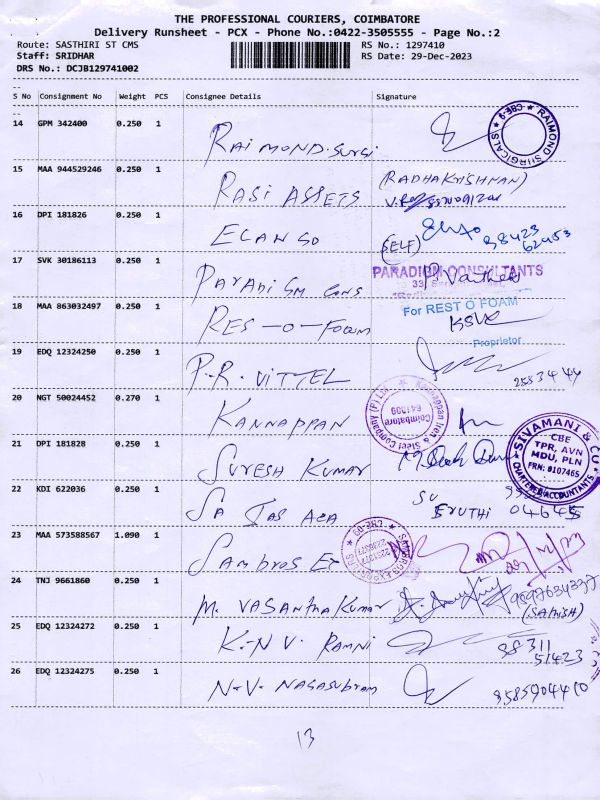 THE PROFESSIONAL COURIERS, COIMBATORE
Delivery Runsheet - PCX - Phone No.:0422-3505555 - Page No.:2
Route: SASTHIRI ST CMS
RS No.: 1297410
Staff: SRIDHAR
RS Date: 29-Dec-2023
DRS No.: DCJB129741002
S No Consignment No Weight PCS Consignee Details Signature
14 GPM 342400 0.250 1
RAIMOND SURGI
RAIMOND SURGICALS
15 MAA 944529246 0.250 1
RASI ASSETS
(RADHAKRISHNAN)
16 DPI 181826 0.250 1
ELANGO
(SELF)
98423
62953
17 SVK 30186113 0.250 1
PARADIGM CONS
PARADIGM CONSULTANTS
18 MAA 863032497 0.250 1
RES-O-FOAM
For REST O FOAM
Proprietor
19 EDQ 12324250 0.250 1
P.R. VITTEL
20 NGT 50024452 0.270 1
KANNAPPAN
Kannappan Iron & Steel Company (P) Ltd
Coimbatore
641 009
21 DPI 181828 0.250 1
SURESH KUMAR
SIVAMANI & CO
CBE
TPR, AVN
MDU, PLN
FRN: 010746S
CHARTERED ACCOUNTANTS
22 KDI 622036 0.250 1
SRUTHI
04645
23 MAA 573588567 1.090 1
SAMBROS EX
CBE-09
24 TNJ 9661860 0.250 1
M. VASANTHA KUMAR
9597634337
(SATHISH)
25 EDQ 12324272 0.250 1
K.N.V. RAMNI
98 311
51423
26 EDQ 12324275 0.250 1
N.V. NAGASUBRAM
9585904410
13